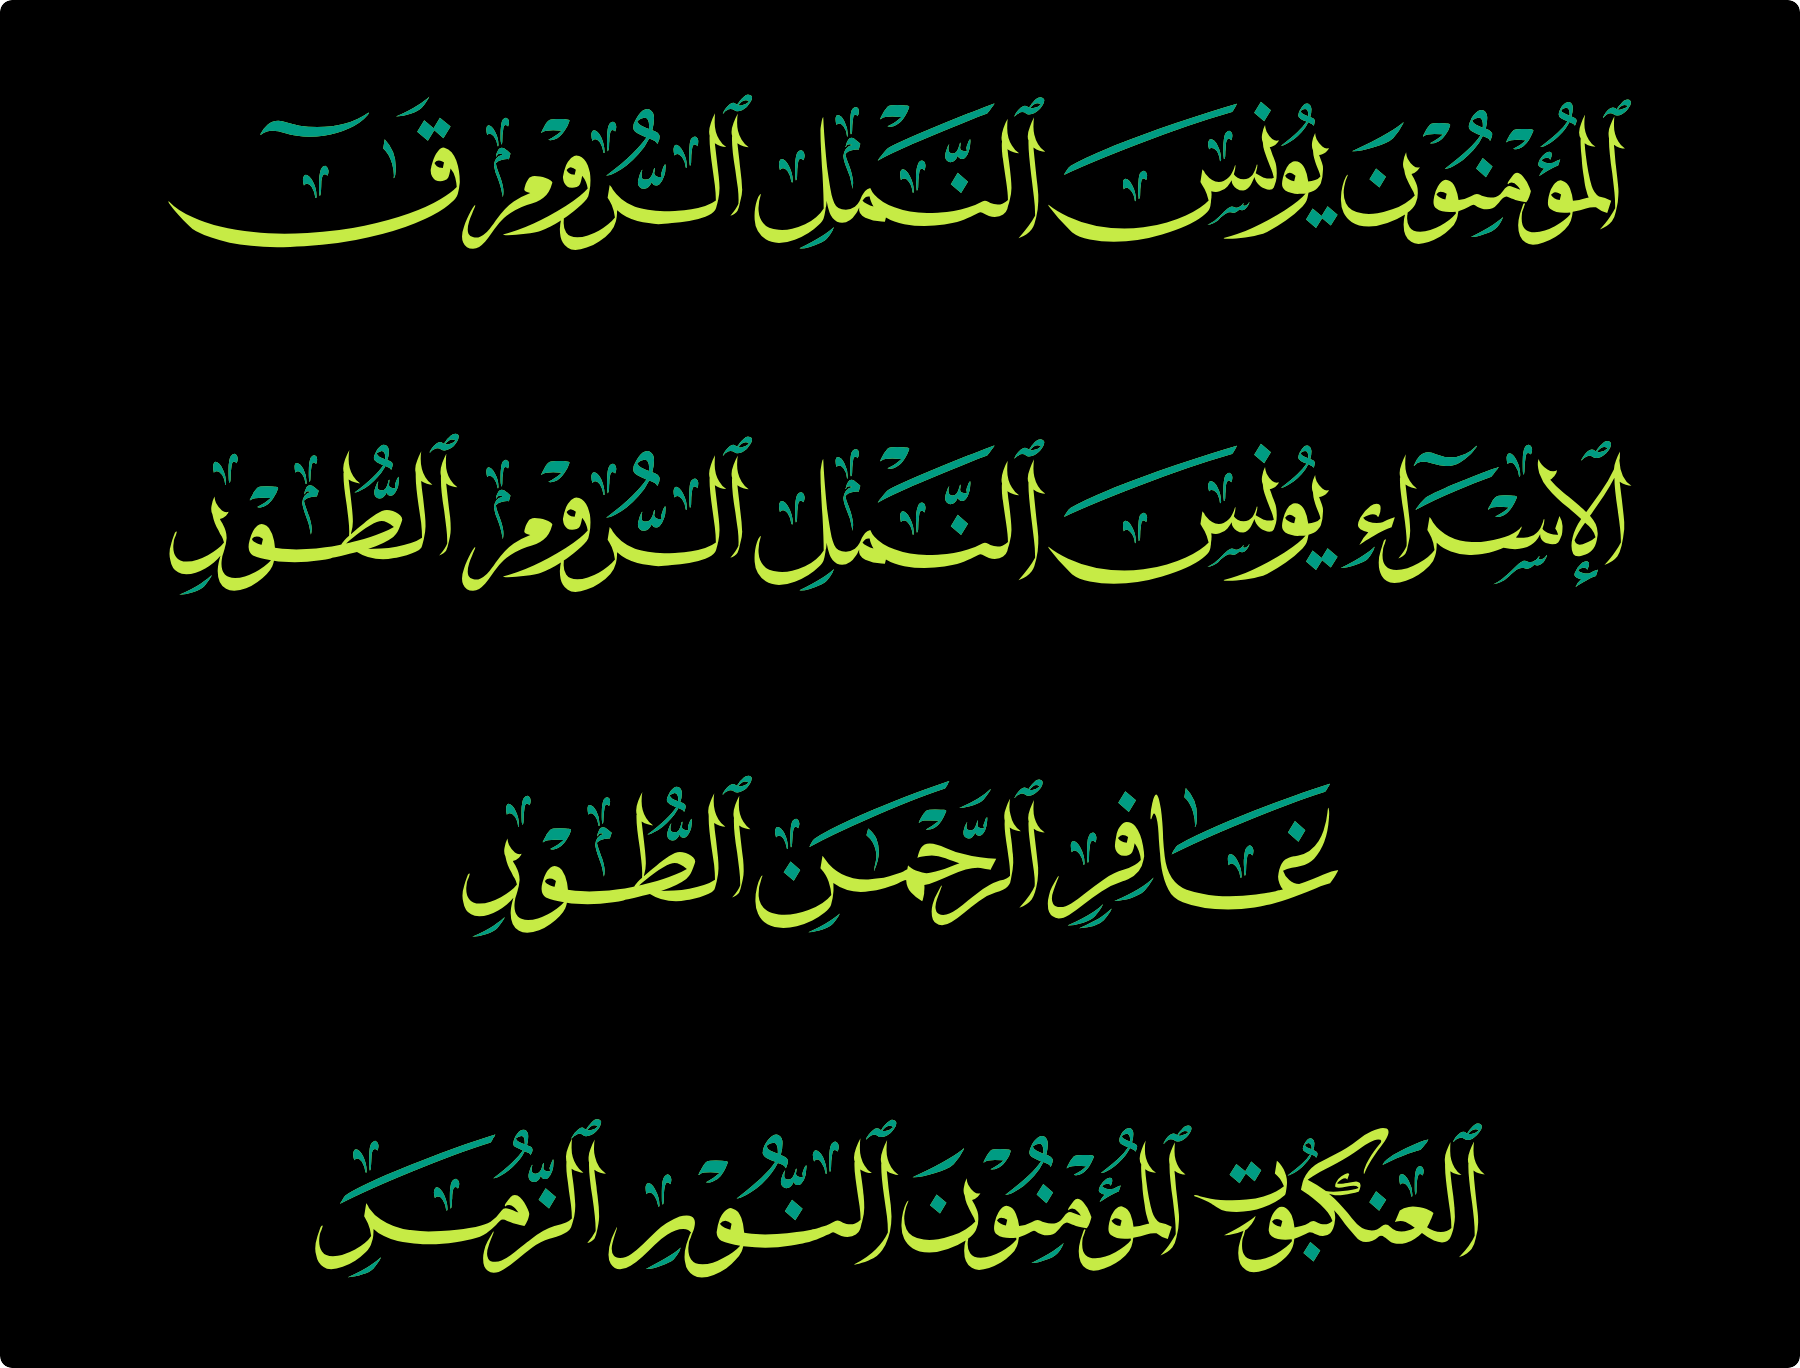 ٱلْمُؤْمِنُوْنَ يُونُس ٱلنَّمْلِ ٱلرُّوْم قٓ
ٱلْإِسْرَآءِ يُونُس ٱلنَّمْلِ ٱلرُّوْم ٱلطُّوْرِ
غَافِرٍ ٱلرَّحْمٰنِ ٱلطُّوْرِ
ٱلْعَنْكَبُوْتِ ٱلْمُؤْمِنُوْنَ ٱلنُّوْرِ ٱلزُّمَرِ